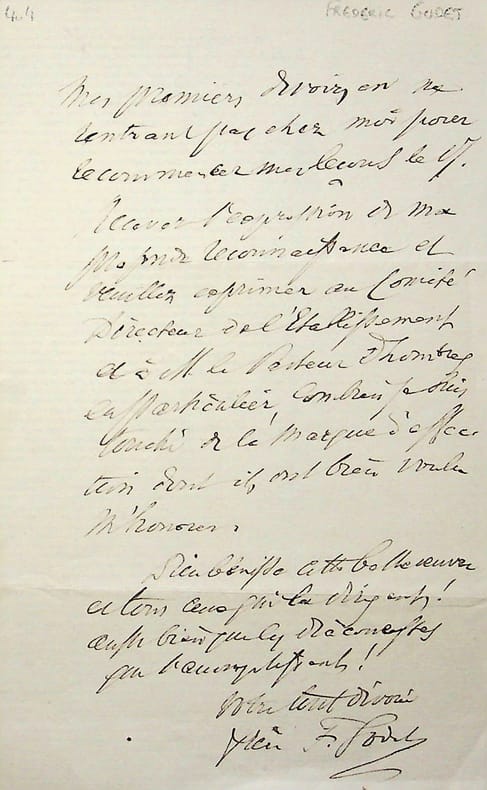 44 FREDERIC GODET
Mes premiers devoirs en ne
rentrant pas chez moi pour
recommencer mes leçons le 15.
Recevez l'expression de ma
profonde reconnaissance et
veuillez exprimer au Comité
Directeur de l'Etablissement
et à M. le Pasteur Dhombres
en particulier, combien je suis
touché de la marque d'affec-
tion dont ils ont bien voulu
m'honorer.
Dieu bénisse cette belle œuvre
et tous ceux qui la dirigent!
aussi bien que les diaconesses
qui l'accomplissent!
Votre tout dévoué
F. Godet